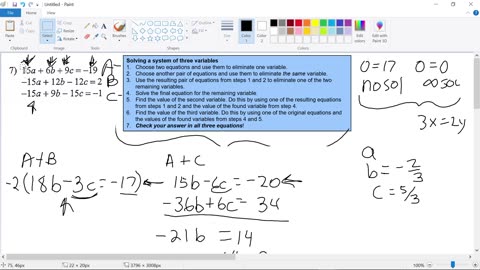 Untitled - Paint
File Home View
7) 15a + 6b + 9c = -19 A
-15a + 12b - 12c = 2 B
-15a + 9b - 15c = -1 C
Solving a system of three variables
1. Choose two equations and use them to eliminate one variable.
2. Choose another pair of equations and use them to eliminate the same variable.
3. Use the resulting pair of equations from steps 1 and 2 to eliminate one of the two
remaining variables.
4. Solve the final equation for the remaining variable.
5. Find the value of the second variable. Do this by using one of the resulting equations
from steps 1 and 2 and the value of the found variable from step 4.
6. Find the value of the third variable. Do this by using one of the original equations and
the values of the found variables from steps 4 and 5.
7. Check your answer in all three equations!
0=17 0=0
no sol ∞ sol
3x=2y
A+B
-2(18b-3c=-17)
A+C
15b-6c=-20
-36b+6c=34
-21b=14
a
b=-2/3
c=5/3
75, 46px
22 × 20px
3796 × 3008px
100%